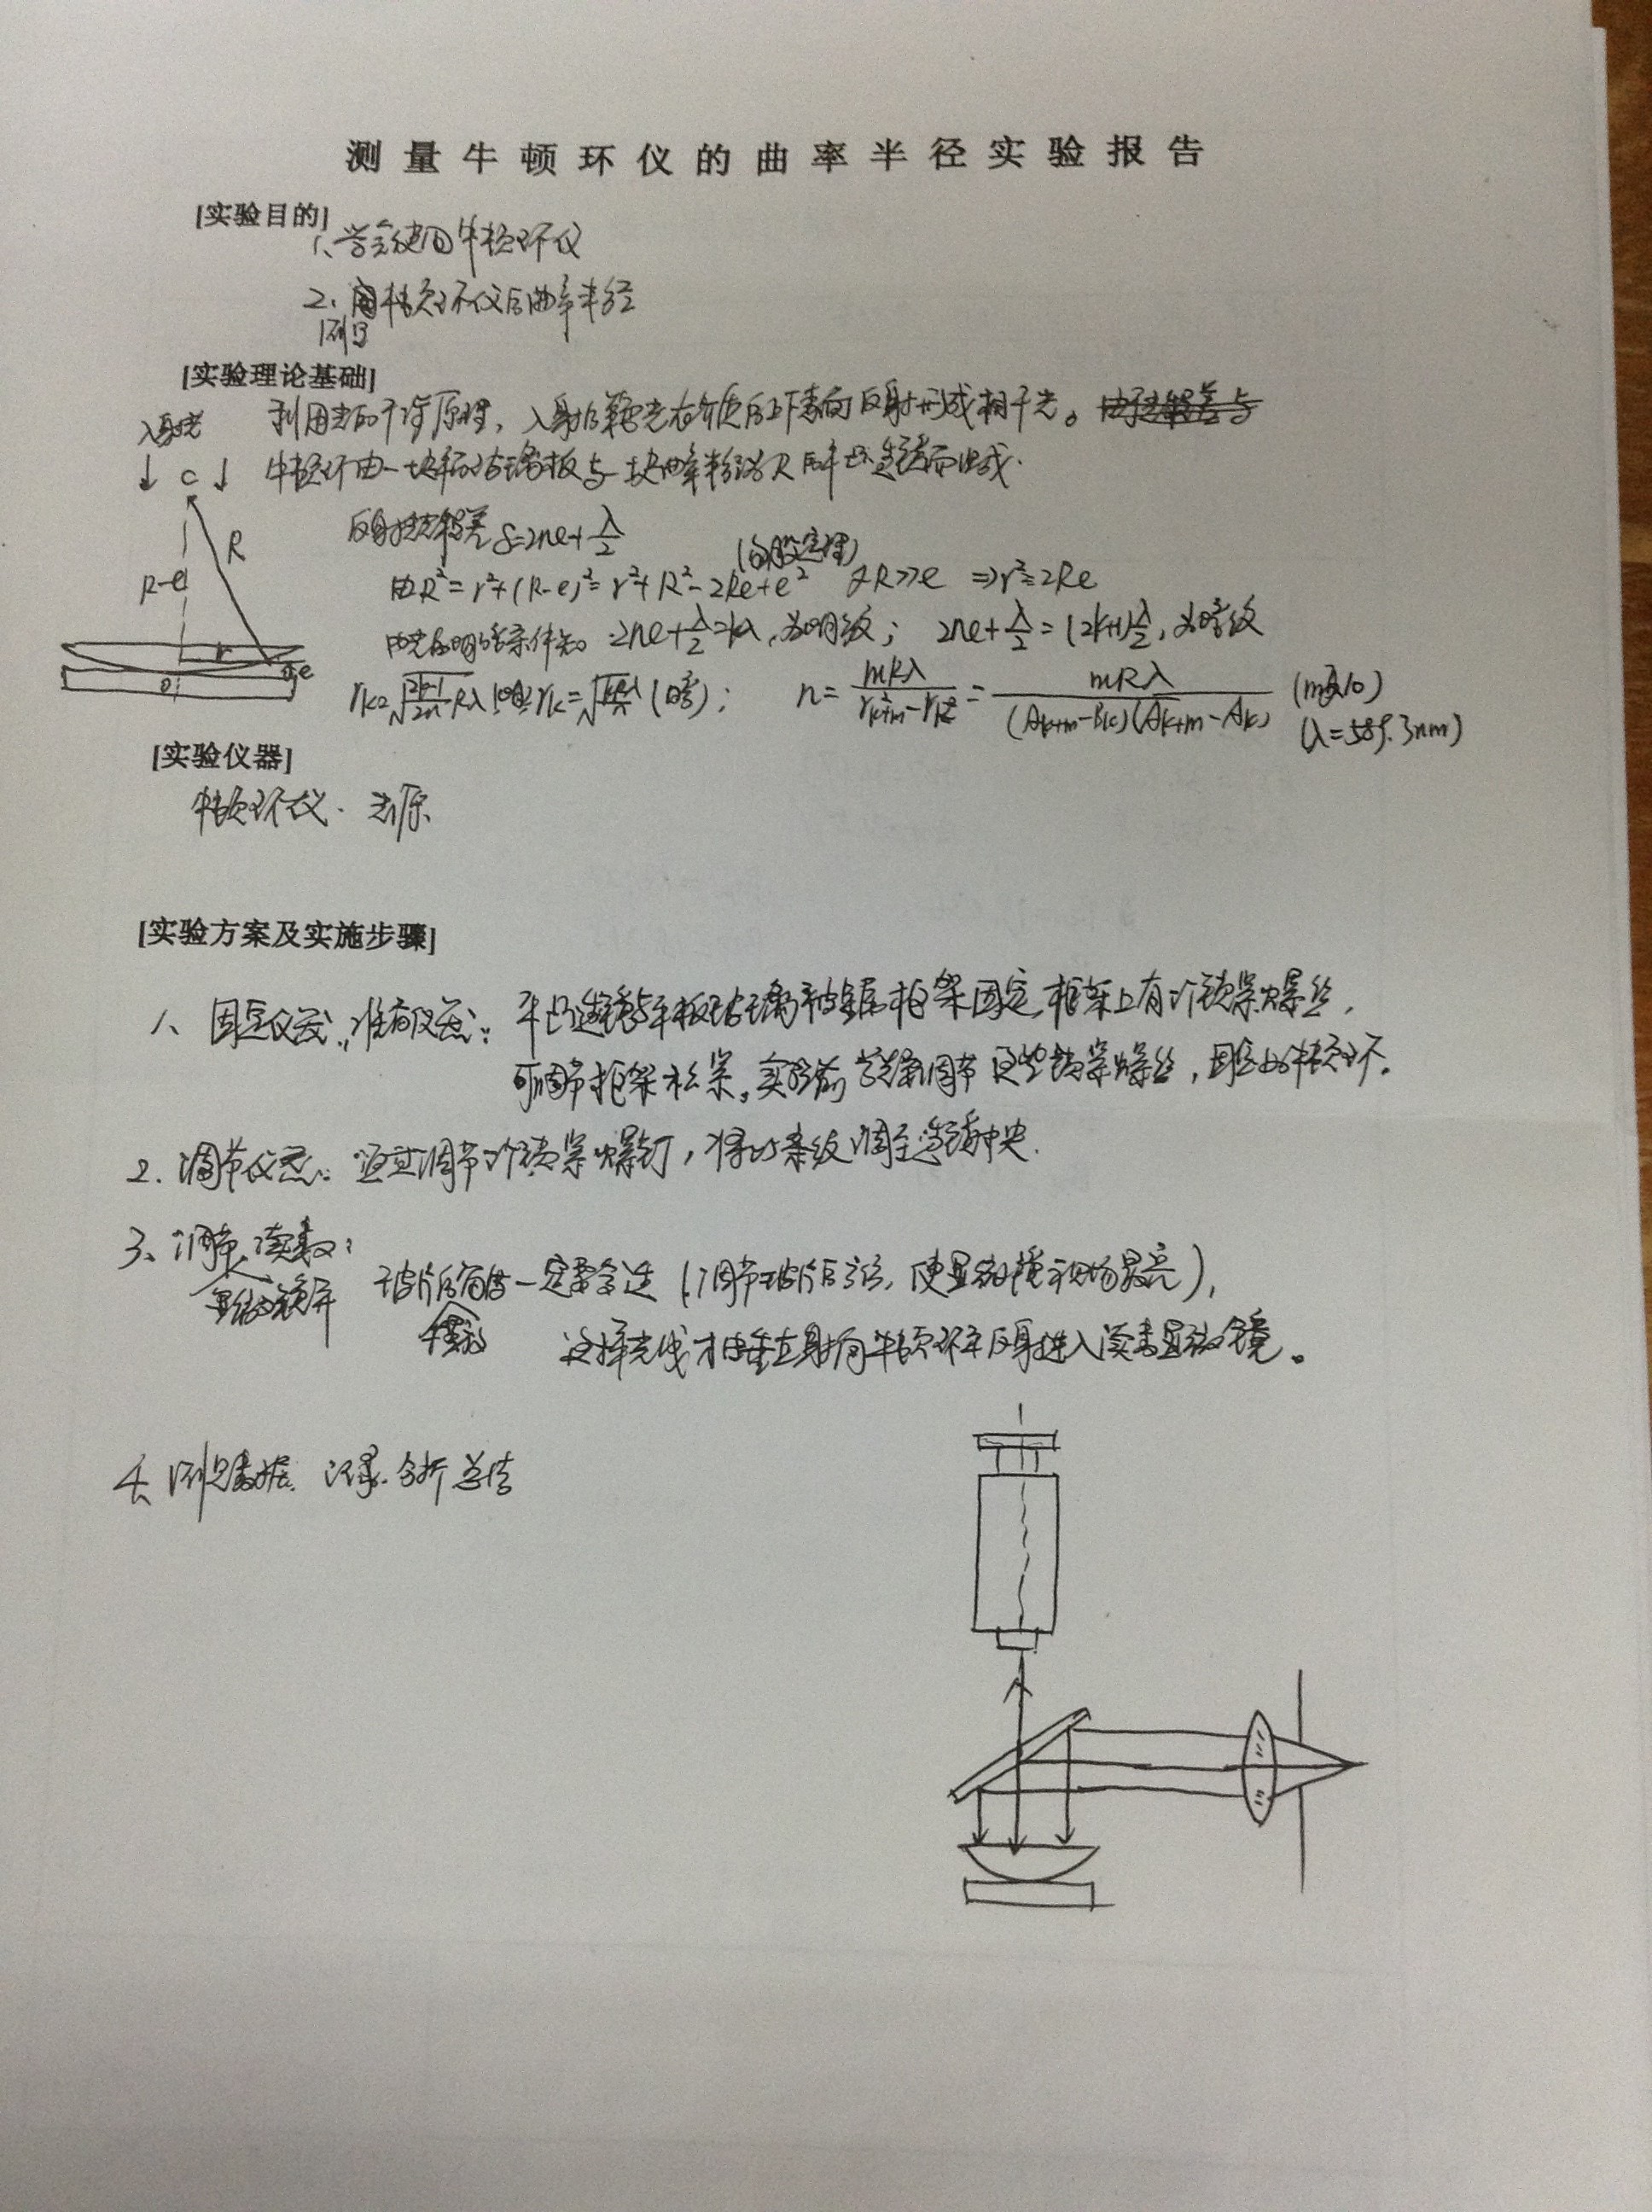 测量牛顿环仪的曲率半径实验报告
[实验目的]
1、学会使用牛顿环仪
2、测量牛顿环仪的曲率半径
[实验理论基础]
入射光 利用光的干涉原理，入射的单色光在介质的上下表面反射形成相干光。
↓ C ↓ 牛顿环由一块平面玻璃板与一块曲率半径为R的平凸透镜而组成.
反射光光程差 δ=2ne+λ/2
(勾股定理)
R
R-e
由R²=r²+(R-e)²=r²+R²-2Re+e² 又R>>e ⇒r²=2Re
由光的明暗条件知 2ne+λ/2=kλ, 为明纹； 2ne+λ/2=(2k+1)λ/2, 为暗纹
r e
o
rk=√((2k-1)/2n Rλ) (明) rk=√(kRλ/n) (暗)； n=mRλ/(r²k+m-r²k)=mRλ/((Ak+m-Bk)(Ak+m-Ak)) (m取10)
(λ=589.3nm)
[实验仪器]
牛顿环仪. 光源
[实验方案及实施步骤]
1、固定仪器，准备仪器： 平凸透镜与平板玻璃被金属框架固定，框架上有3个锁紧螺丝，
可调节框架松紧。实验前首先调节这些锁紧螺丝，固定好牛顿环。
2. 调节仪器：通过调节3个锁紧螺钉，将条纹调至透镜中央.
3、调节读数
显微镜 玻片的 一定要合适（调节玻片的方位，使显微镜视场最亮），
这样光线才由垂直射向牛顿环并反射进入读数显微镜。
4、测量数据. 记录. 分析 总结